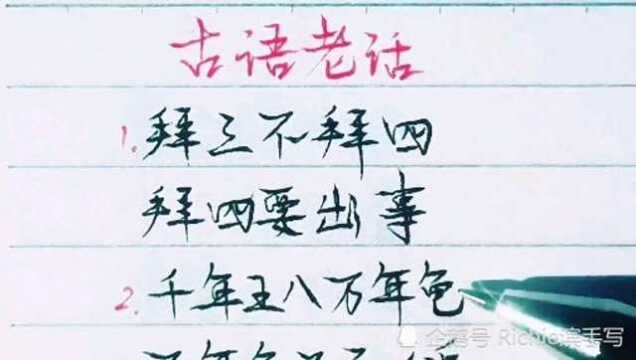 古语老话
1. 拜三不拜四
拜四要出事
2. 千年王八万年龟
企鹅号 Richio滨手写